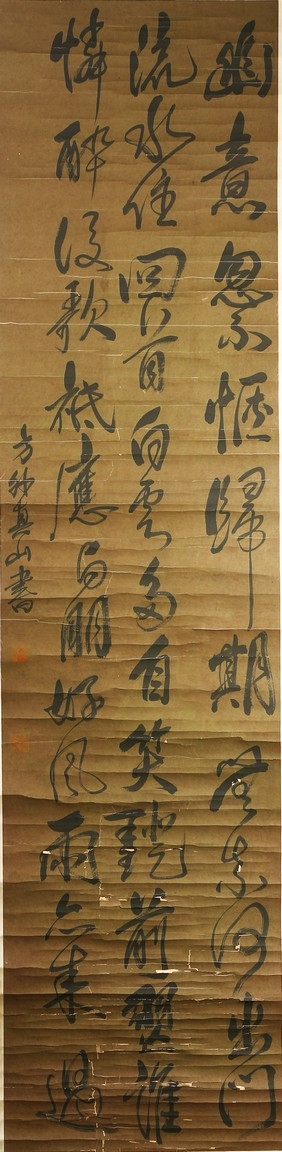 幽意忽不愜歸期無奈何出門
流水住回首白雲多自笑燈前舞誰
憐醉後歌祗應與朋好風雨亦來過
方外真山書